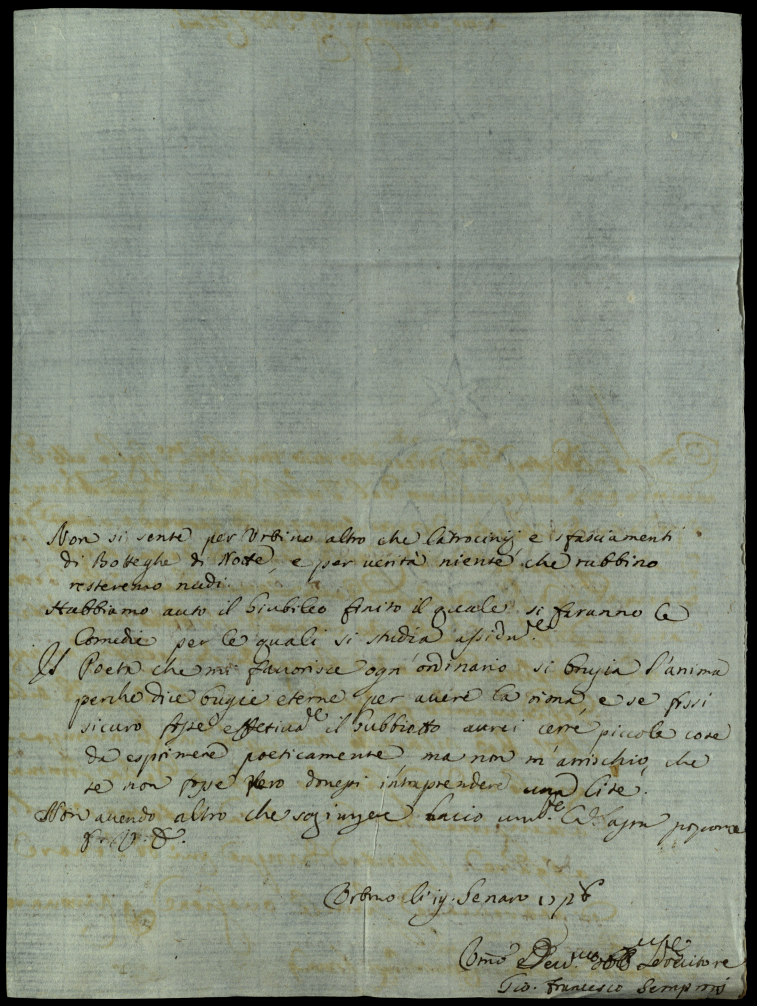 Non si sente per Urbino altro che latrocinij, e sfasciamenti
di Botteghe di Notte, e per verità niente che rubbino
resteremo nudi.
Habbiamo auto il Giubileo finito il quale si faranno le
Comedie per le quali si studia assidu.te
Il Poeta che mi fauorisce ogn'ordinario si brugia l'anima
perche dice bugie eterne per auere la rima, e se fossi
sicuro fosse effetiua il subbietto aurei certe piccole cose
da esprimere poeticamente, ma non m'arrischio, che
se non fosse Vero douessi intraprendere una lite.
Non auendo altro che sogiungere bacio um.te la
Gennaro
Gio. Francesco